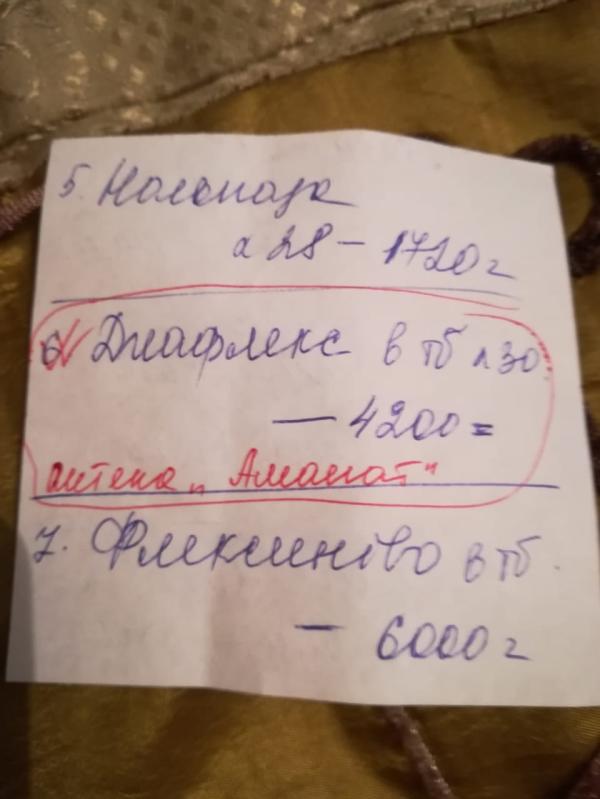 5. Нольпаза
х 28 - 1720 г
6 Диафлекс в тб х 30.
- 4200 =
аптека „Аманат"
7. Флексиново в тб.
- 6000 г